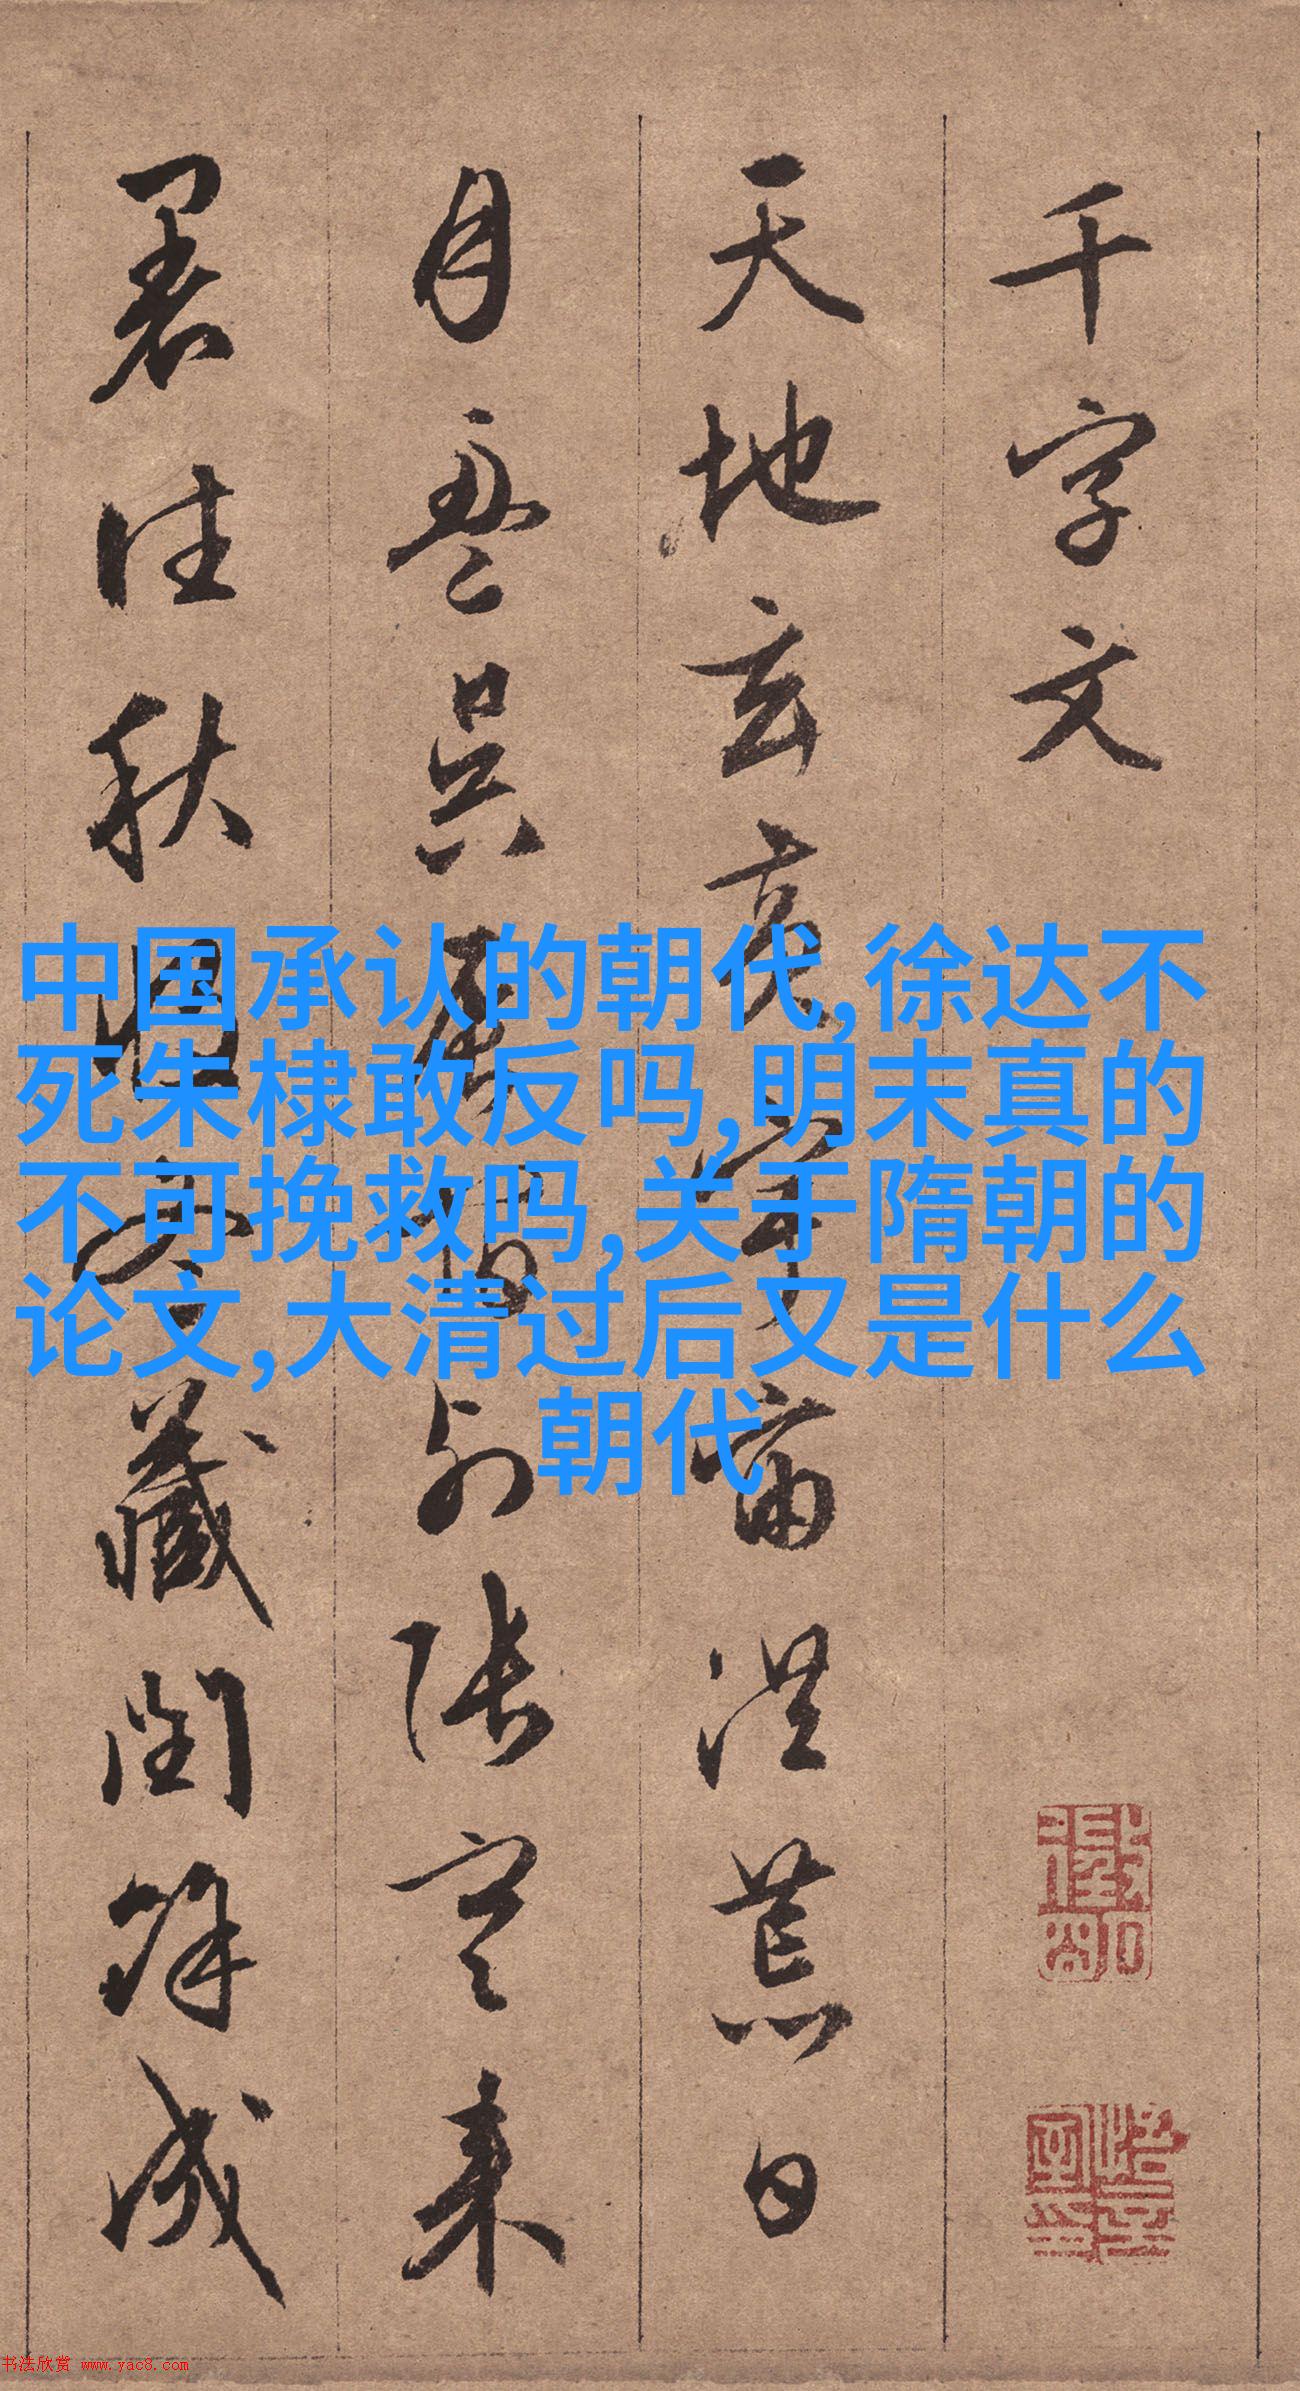 千字文
天地玄黄宇宙洪荒日
月盈昃辰宿列张寒来
暑往秋收冬藏闰馀成
中国承认的朝代,徐达不
死朱棣敢反吗,明末真的
不可挽救吗,关于隋朝的
论文,大清过后又是什么
朝代
书法欣赏 www.yac8.com